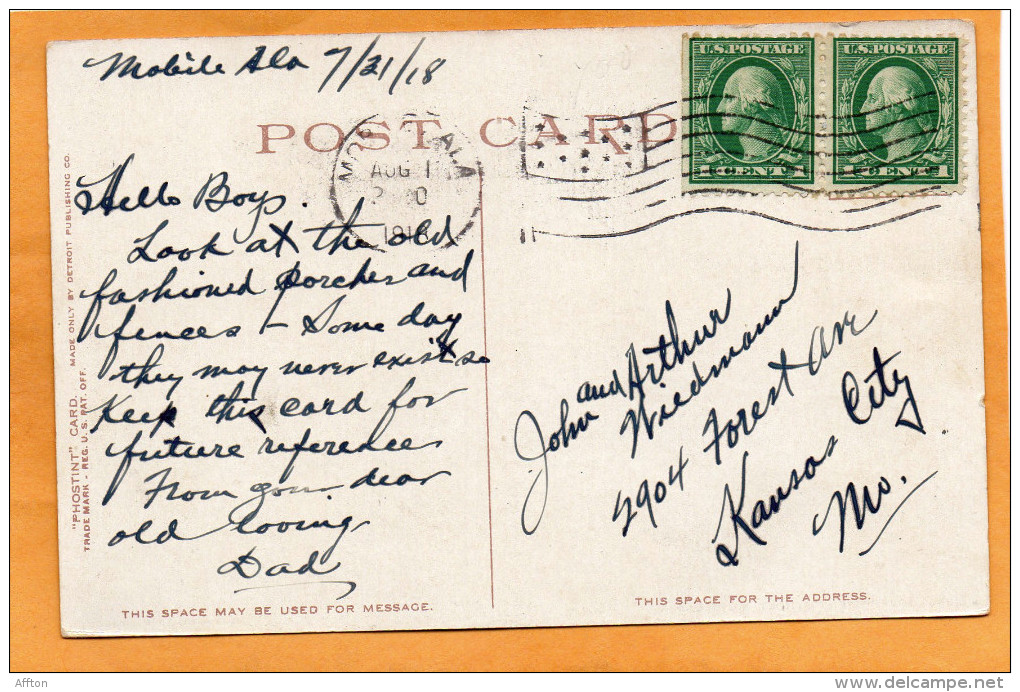 Mobile Ala 7/31/18
POST CARD
U.S. POSTAGE
U.S. POSTAGE
1 CENT 1
1 CENT 1
ALA
AUG 1
1918
Hello Boys.
Look at the old
fashioned porches and
fences - Some day
they may never exist so
Keep this card for
future reference
From your dear
old loving
Dad
John and Arthur
Wiedmann
2904 Forest Ave
Kansas City
Mo.
"PHOSTINT" CARD. MADE ONLY BY DETROIT PUBLISHING CO.
TRADE MARK - REG. U. S. PAT. OFF.
THIS SPACE MAY BE USED FOR MESSAGE.
THIS SPACE FOR THE ADDRESS.
Affton
http://www.delcampe.net